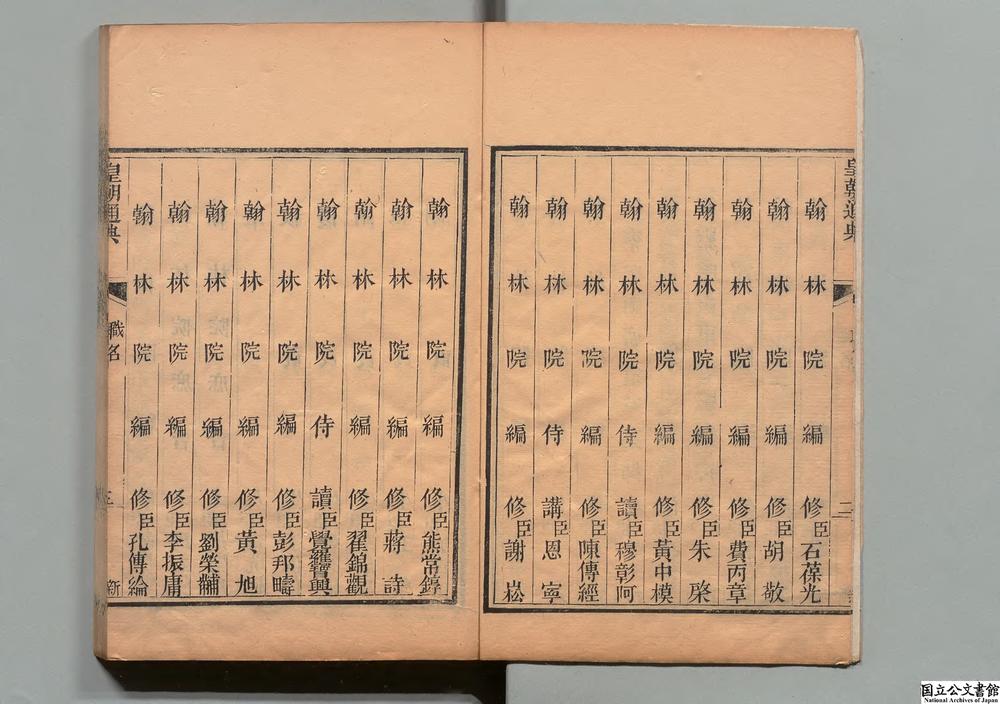 皇朝通典
二
翰林院編修臣石葆光
翰林院編修臣胡敬
翰林院編修臣費丙章
翰林院編修臣朱棨
翰林院編修臣黃中模
翰林院侍讀臣穆彰阿
翰林院編修臣陳傳經
翰林院侍講臣恩寧
翰林院編修臣謝崧
翰林院編修臣熊常錞
翰林院編修臣蔣詩
翰林院編修臣翟錦觀
翰林院侍讀臣覺羅寶興
翰林院編修臣彭邦疇
翰林院編修臣黃旭
翰林院編修臣劉榮黼
翰林院編修臣李振庸
翰林院編修臣孔傳綸
皇朝通典
職名
三
新
国立公文書館
National Archives of Japan